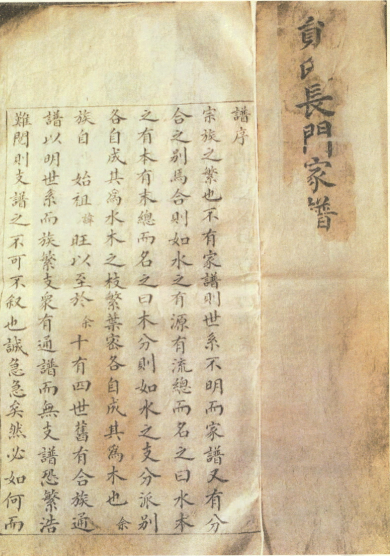 貟氏長門家譜
譜序
宗族之繁也不有家譜則世系不明而家譜又有分
合之別焉合則如水之有源有流總而名之曰水木
之有本有末總而名之曰木分則如水之支分派別
各自成其為水木之枝繁葉密各自成其為木也余
族自 始祖諱旺以至於余十有四世舊有合族通
譜以明世系而族繁支衆有通譜而無支譜恐繁浩
難閱則支譜之不可不叙也誠急急矣然必如何而